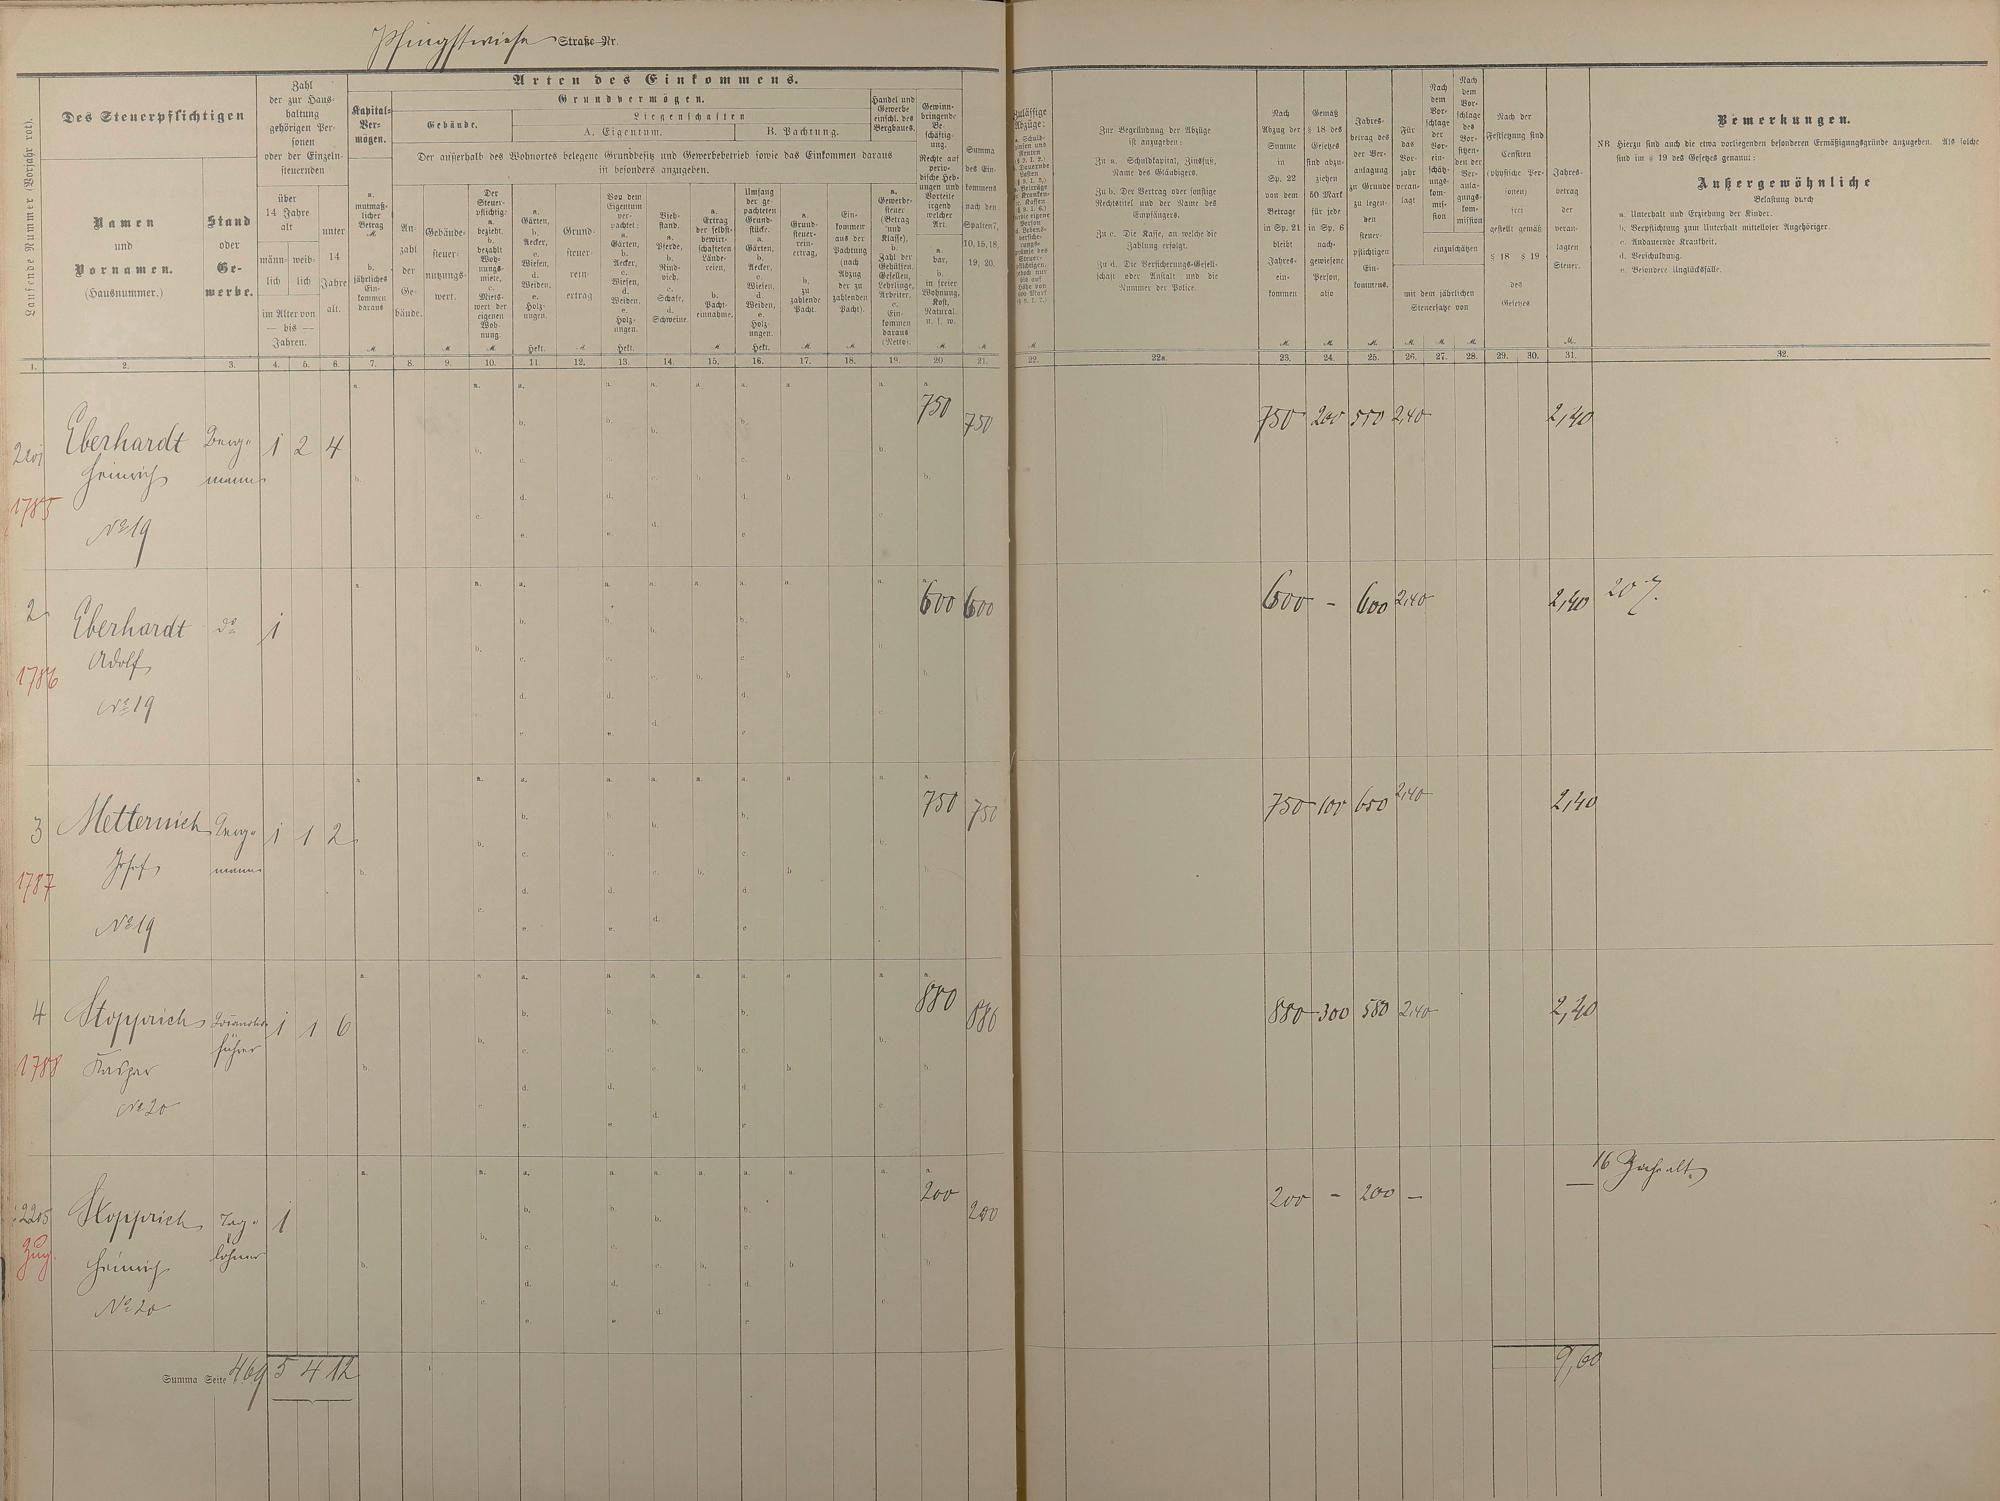 Pfingstwiese Straße Nr.
Laufende Nummer (Vorjahr rot).
Des Steuerpflichtigen
Namen
und
Vornamen.
(Hausnummer.)
Stand
oder
Ge-
werbe.
Zahl
der zur Haus-
haltung
gehörigen Per-
sonen
oder der Einzeln-
steuernden
über
14 Jahre
alt
unter
14
Jahre
alt.
männ-
lich
weib-
lich
im Alter von
— bis —
Jahren.
Arten des Einkommens.
Kapital-
Ver-
mögen.
a.
mutmaß-
licher
Betrag
M
b.
jährliches
Ein-
kommen
daraus
M
Grundvermögen.
Gebäude.
Liegenschaften
A. Eigentum.
B. Pachtung.
Der außerhalb des Wohnortes belegene Grundbesitz und Gewerbebetrieb sowie das Einkommen daraus
ist besonders anzugeben.
An-
zahl
der
Ge-
bäude.
Gebäude-
steuer-
nutzungs-
wert.
M
Der
Steuer-
pflichtige
a.
bezieht
b.
bezahlt
Woh-
nungs-
miete,
c.
Miets-
wert der
eigenen
Woh-
nung.
M
a.
Gärten,
b.
Aecker,
c.
Wiesen,
d.
Weiden,
e.
Holz-
ungen.
Hekt.
Grund-
steuer-
rein-
ertrag
M
Von dem
Eigentum
ver-
pachtet:
a.
Gärten,
b.
Aecker,
c.
Wiesen,
d.
Weiden,
e.
Holz-
ungen.
Hekt.
Vieh-
stand.
a.
Pferde,
b.
Rind-
vieh,
c.
Schafe,
d.
Schweine.
a.
Ertrag
der selbst-
bewirt-
schafteten
Lände-
reien,
b.
Pacht-
einnahme.
M
Umfang
der ge-
pachteten
Grund-
stücke.
a.
Gärten,
b.
Aecker,
c.
Wiesen,
d.
Weiden,
e.
Holz-
ungen.
Hekt.
a.
Grund-
steuer-
rein-
ertrag,
b.
zu
zahlende
Pacht.
M
Ein-
kommen
aus der
Pachtung
(nach
Abzug
der zu
zahlenden
Pacht).
M
Handel und
Gewerbe
einschl. des
Bergbaues.
a.
Gewerbe-
steuer
(Betrag
und
Klasse),
b.
Zahl der
Gehülfen,
Gesellen,
Lehrlinge,
Arbeiter,
c.
Ein-
kommen
daraus
(Netto).
Gewinn-
bringende
Be-
schäftig-
ung.
Rechte auf
perio-
dische Heb-
ungen und
Vorteile
irgend
welcher
Art.
a.
bar,
b.
in freier
Wohnung,
Kost,
Natural.
u. s. w.
M
Summa
des Ein-
kommens
nach den
Spalten 7,
10, 15, 18,
19, 20.
M
Zulässige
Abzüge:
Zur Begründung der Abzüge
ist anzugeben:
Zu a. Schuldkapital, Zinsfuß,
Name des Gläubigers.
Zu b. Der Vertrag oder sonstige
Rechtstitel und der Name des
Empfängers.
Zu c. Die Kasse, an welche die
Zahlung erfolgt.
Zu d. Die Versicherungs-Gesell-
schaft oder Anstalt und die
Nummer der Police.
Nach
Abzug der
Summe
in
Sp. 22
von dem
Betrage
in Sp. 21
bleibt
Jahres-
ein-
kommen
M
Gemäß
§ 18 des
Gesetzes
sind abzu-
ziehen
50 Mark
für jede
in Sp. 6
nach-
gewiesene
Person,
also
M
Jahres-
betrag des
der Ver-
anlagung
zu Grunde
zu legen-
den
steuer-
pflichtigen
Ein-
kommens.
M
Für
das
Vor-
jahr
veran-
lagt
Nach
dem
Vor-
schlage
der
Vor-
ein-
schätz-
ungs-
kom-
mis-
sion
Nach
dem
Vor-
schlage
des
Vor-
sitzen-
den der
Ver-
anla-
gungs-
kom-
mission
einzuschätzen
mit dem jährlichen
Steuersatze von
M M M
Nach der
Festsetzung sind
Censiten
(physische Per-
sonen)
frei
gestellt gemäß
§ 18 § 19
des
Gesetzes.
Jahres-
betrag
der
veran-
lagten
Steuer.
M.
Bemerkungen.
NB Hierzu sind auch die etwa vorliegenden besonderen Ermäßigungsgründe anzugeben. Als solche
sind im § 19 des Gesetzes genannt:
Außergewöhnliche
Belastung durch
a. Unterhalt und Erziehung der Kinder.
b. Verpflichtung zum Unterhalt mittelloser Angehöriger.
c. Andauernde Krankheit.
d. Verschuldung.
e. Besondere Unglücksfälle.
1. 2. 3. 4. 5. 6. 7. 8. 9. 10. 11. 12. 13. 14. 15. 16. 17. 18. 19. 20. 21. 22. 22a. 23. 24. 25. 26. 27. 28. 29. 30. 31. 32.
Eberhardt Berg- 1 2 4 750 750 750 200 550 2,40 2,40
Heinrich mann
1785
No 19
2 Eberhardt do 1 600 600 600 - 600 2,40 2,40 20 J.
Adolf
1786
No 19
3 Metternich Berg- 1 1 2 750 750 750 100 650 2,40 2,40
Josef mann
1787
No 19
4 Stopprich 1 1 6 880 880 880 300 580 2,40 2,40
führer
Kaspar
1788
No 20
2205 Stopprich Tag- 1 200 200 200 - 200 — — 16 Jahr alt
Zug. löhner
Heinrich
No 20
Summa Seite 469 5 4 12 9,60